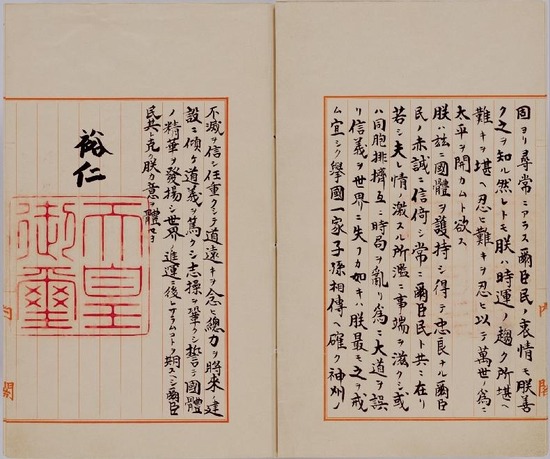 固ヨリ尋常ニアラス爾臣民ノ衷情モ朕善
ク之ヲ知ル然レトモ朕ハ時運ノ趨ク所堪ヘ
難キヲ堪ヘ忍ヒ難キヲ忍ヒ以テ萬世ノ爲ニ
太平ヲ開カムト欲ス
朕ハ玆ニ國體ヲ護持シ得テ忠良ナル爾臣
民ノ赤誠ニ信倚シ常ニ爾臣民ト共ニ在リ
若シ夫レ情ノ激スル所濫ニ事端ヲ滋クシ或
ハ同胞排擠互ニ時局ヲ亂リ爲ニ大道ヲ誤
リ信義ヲ世界ニ失フカ如キハ朕最モ之ヲ戒
ム宜シク擧國一家子孫相傳ヘ確ク神州ノ
不滅ヲ信シ任重クシテ道遠キヲ念ヒ總力ヲ將來ノ建
設ニ傾ケ道義ヲ篤クシ志操ヲ鞏クシ誓テ國體
ノ精華ヲ發揚シ世界ノ進運ニ後レサラムコトヲ期スヘシ爾臣
民其レ克ク朕カ意ヲ體セヨ
裕仁
天皇
御璽